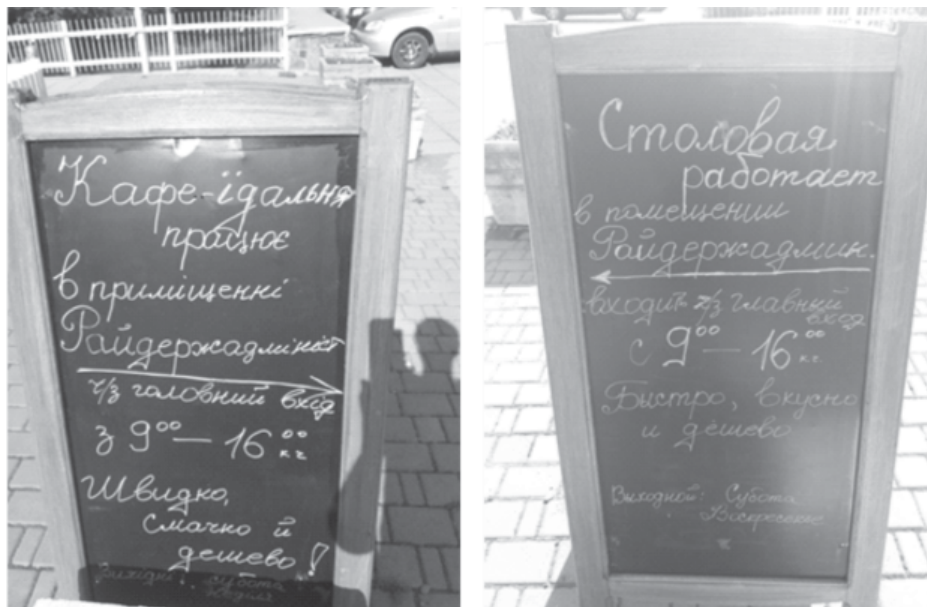 Кафе-їдальня
працює
в приміщенні
Райдержадмініст
ч/з головний вхід
з 9⁰⁰ — 16⁰⁰
к.ч.
Швидко,
смачно й
дешево!
Вихідні: субота
неділя
Столовая
работает
в помещении
Райдержадмин.
входить ч/з главный
вход
с 9⁰⁰ — 16⁰⁰
к.ч.
Быстро, вкусно
и дёшево
Выходной: Субота
Воскресенье